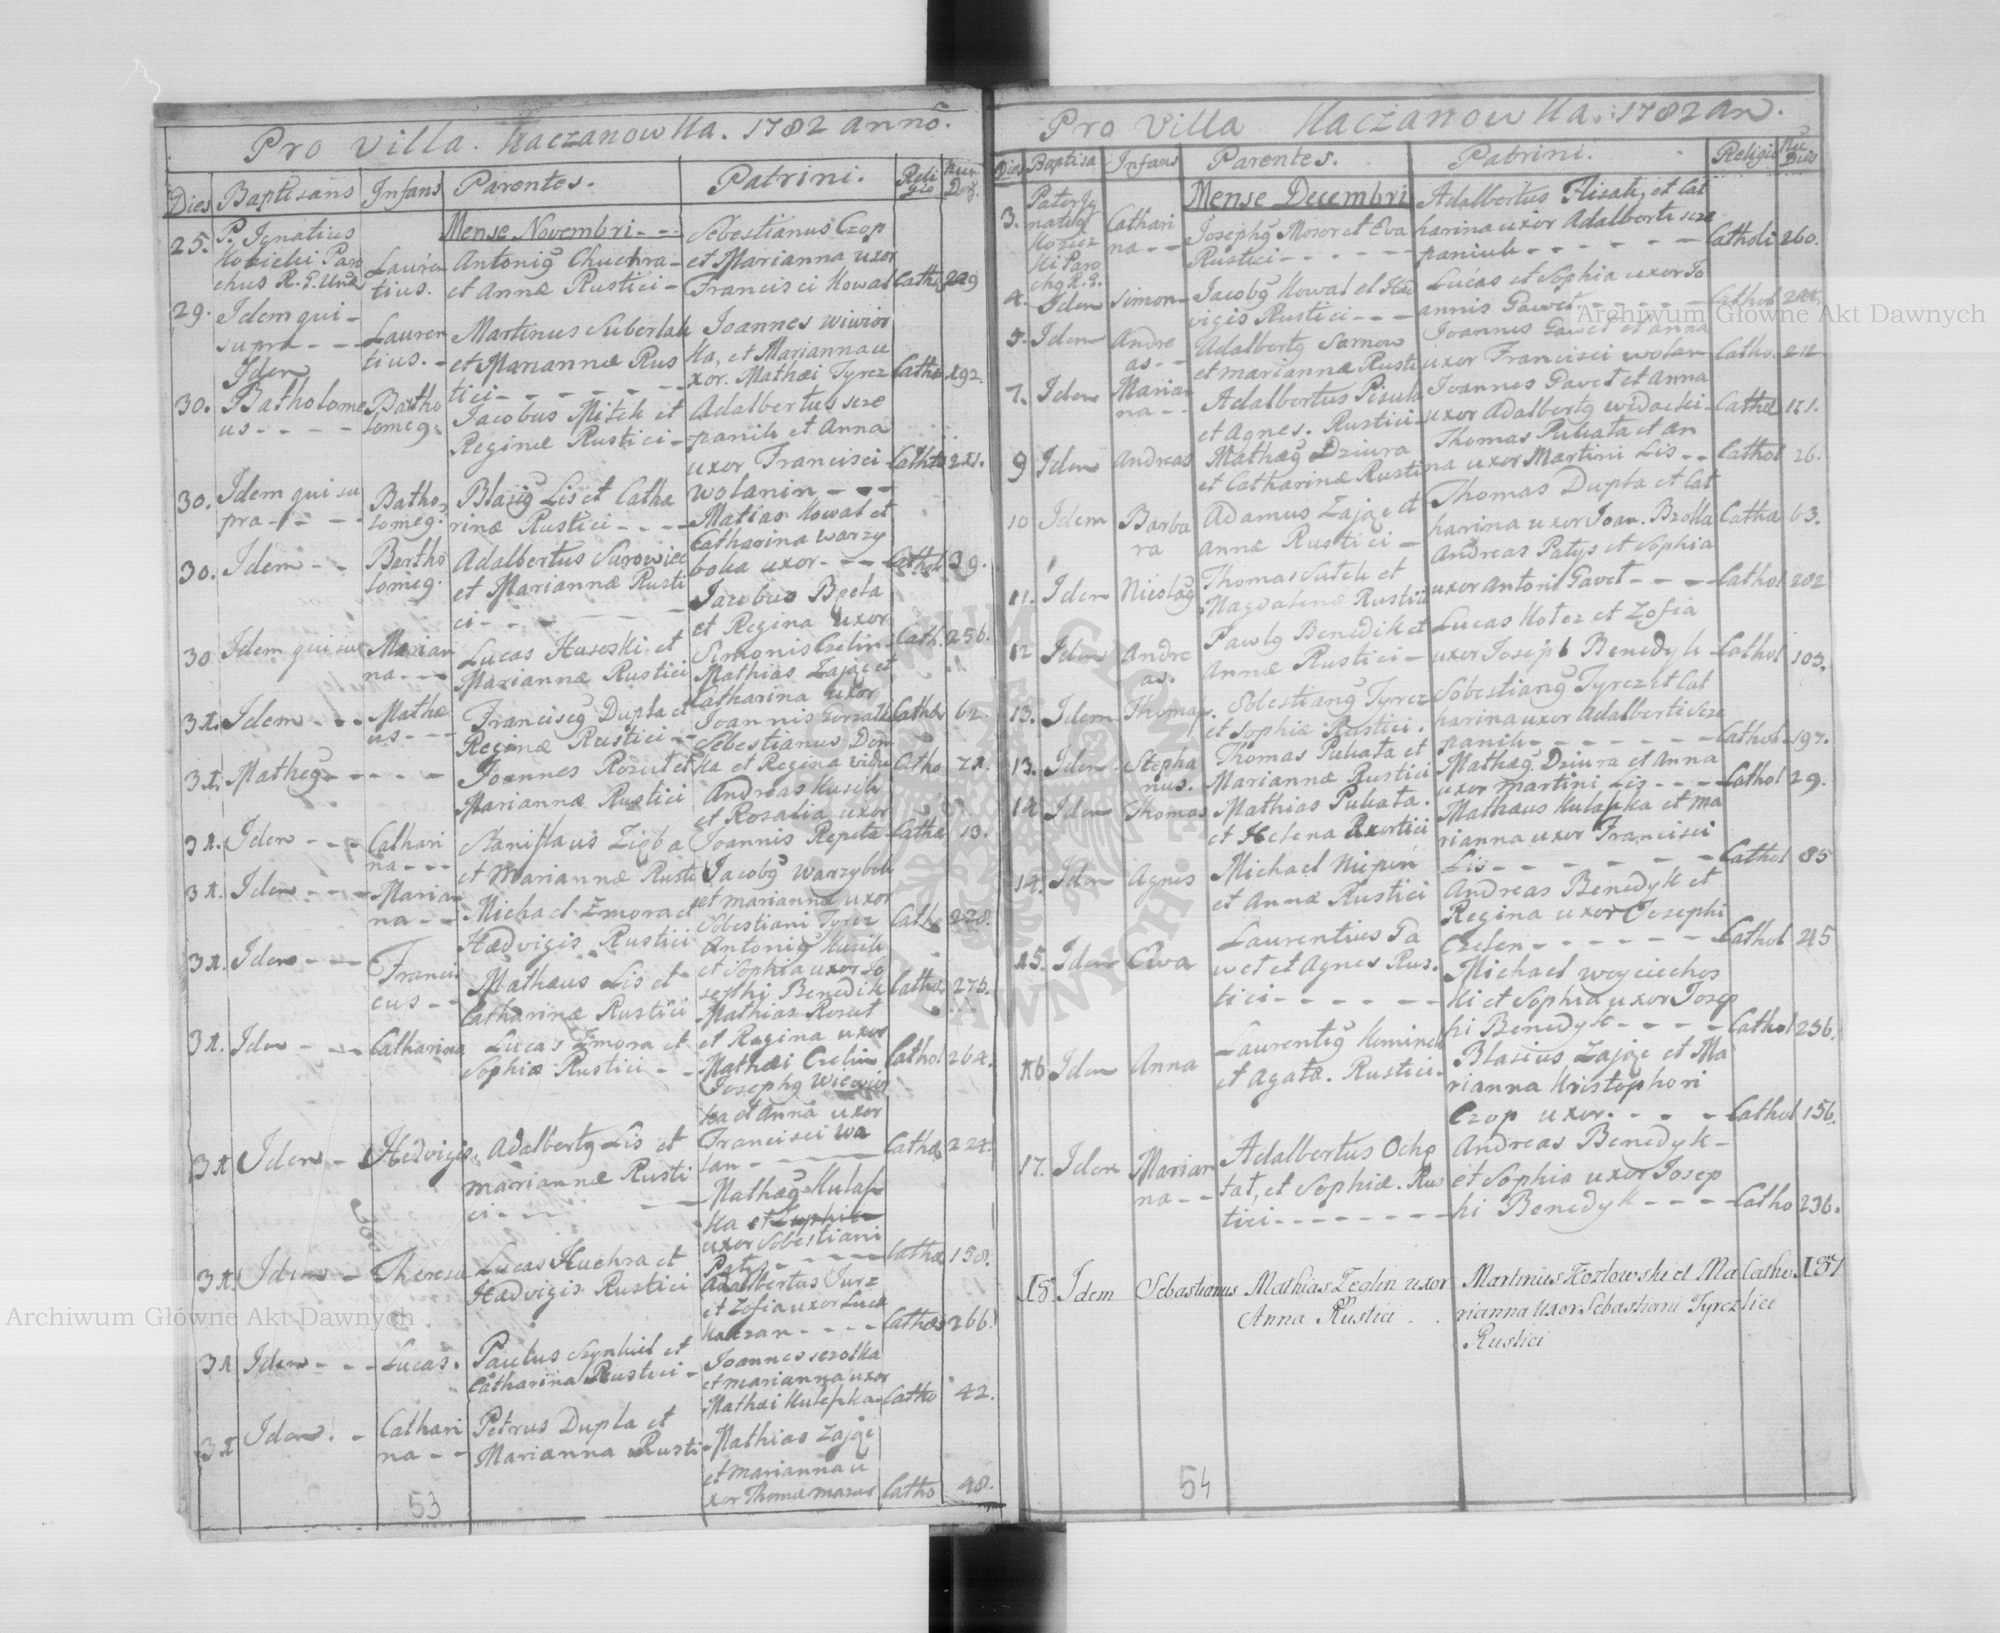 Pro Villa. Kaczanowka. 1782 anno.
Dies Baptisans Infans Parentes. Patrini. Religio Num Dom.
Mense Novembri
25. P. Ignatius Kozicki Parochus R. G. Laurentius. Antonig Chuchra et Annæ Rustici Sebestianus Czop et Marianna uxor Francisci Kowal Catho 229
29. Idem qui supra Laurentius. Martinus Suberlak et Mariannæ Rustici Joannes Wiwiorka, et Marianna uxor. Mathæi Tyrcz Catho 192.
30. Idem Batholomeus Bartholomeg Jacobus Mitek et Reginæ Rustici Adalbertus Szepanik et Anna uxor Francisci Wolanin Catho 221.
30. Idem qui supra Batholomeg. Blasig Lis et Catharinæ Rustici Matias Kowal et Catharina Warzyboka uxor Cathol 39.
30. Idem Bartholomeg. Adalbertus Surowiec et Mariannæ Rustici Jacobus Rpeta et Regina uxor Simonis Czelin Cath. 256.
30 Idem qui su Marianna Lucas Huseski et Mariannæ Rustici Mathias Zając et Catharina uxor Joannis Cathol 62.
31. Idem Mathæus Franciscg Dupla et Reginæ Rustici Sebestianus et Regina Catho
31. Matheg Joannes Rozut et Mariannæ Rustici Andreas Kusik et Rosalia uxor Joannis Repeta Catho 13.
31. Idem Catharina Stanislaus Zięba et Mariannæ Rusti Jacobg Warzybok et marianna uxor Sobestiani Tyrcz Catho 228.
31. Idem Marianna Michael Zmora et Hædvigis Rustici Antonig Kusik et Sophia uxor Josephi Benedik Cathol 275.
31. Idem Franciscus Mathæus Lis et Catharinæ Rustici Mathias Rozut et Regina uxor Mathæi Czelin Cathol 264.
31. Idem Catharina Lucas Zmora et Sophiæ Rustici Josephg Wiewiorka et Anna uxor Francisci Wolan Catho 224.
31 Idem Hedvigis. Adalbertg Lis et mariannæ Rustici Mathæg Kulapka et uxor Sobestiani Patys Catho 158.
31. Idem Theresia Lucas Kuchra et Hædvigis Rustici Adalbertus Jurz et Zofia uxor Luca Kaczan Cathol 266.
31 Idem Lucas. Paulus Szynkul et Catharina Rustici Joannes Szozoka et marianna uxor Mathæi Kulepka Catho 42.
31 Idem. Catharina Petrus Dupla et Marianna Rusti Mathias Zając et marianna uxor Thomæ mazur Catho 48.
53
Pro Villa Kaczanowka. 1782 an.
Dies Baptisa Infans Parentes. Patrini. Religio Nu Dois
Mense Decembri
3. Pater Ignatius Kozicki Paroch R. G. Catharina Josephg Mosor et Eva Rustici Adalbertus Flisak et Catharina uxor Adalberti Szepaniuk Catholi 260.
4. Idem Simon Jacobg Kowal et Hædvigis Rustici Lucas et Sophia uxor Joannis Gawet Cathol
5. Idem Andreas Adalbertg Sarnow et mariannæ Rusti Joannes Gawet et anna uxor Francisci Wolan Catho. 212
7. Idem Marianna Adalbertus Pisula et Agnes. Rustici Joannes Gavet et Anna uxor Adalbertg Widacki Cathol 171.
9 Idem Andreas Mathæg Dziura et Catharinæ Rusti Thomas Pukata et Anna uxor Martini Lis Cathol 26.
10 Idem Barbara Adamus Zając et Annæ Rustici Thomas Dupla et Catharina uxor Joan. Bzoka Catho 63.
11. Idem Nicolag Thomas Sutek et Magdalenæ Rustici Andreas Patys et Sophia uxor Antoni Gavet Cathol 202
12 Idem Andreas. Pawlg Benedik et Annæ Rustici Lucas Kotcz et Zofia uxor Joseph Benedyk Cathol 103.
13. Idem Thomas. Sebestiang Tyrcz et Sophiæ Rustici. Sobestiang Tyrcz et Catharina uxor Adalberti Szepanik Cathol 197.
13. Idem Stephanus. Thomas Pukata et Mariannæ Rustici Mathæg Dziura et Anna uxor Martini Lis Cathol 29.
14. Idem Thomas Mathias Pukata. et Helena Rustici Mathæus Kulapka et Marianna uxor Francisci Lis Cathol 85
14. Idem Agnes Michael Niczpen et Annæ Rustici Andreas Benedyk et Regina uxor Josephi Czelen Cathol 245
15. Idem Ewa Laurentius Gawet et Agnes Rustici Michael Woyciechoski et Sophia uxor Josephi Benedyk Cathol 236.
16 Idem Anna Laurentg Kominek et Agatæ. Rustici. Blasius Zając et Marianna Kristophori Czop uxor. Cathol 156.
17. Idem Marianna Adalbertus Ochptat, et Sophiæ. Rustici Andreas Benedyk et Sophia uxor Josephi Benedyk Catho 236.
18 Idem Sebastianus Mathias Zeglin uxor Anna Rustici Martinus Kozlowski et Marianna uxor Sebastiani Tyrczlici Rustici Catho 187
54
Archiwum Główne Akt Dawnych
Archiwum Główne Akt Dawnych
ARCHIWUM GŁÓWNE AKT DAWNYCH